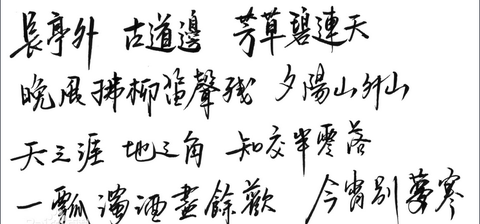 長亭外 古道邊 芳草碧連天
晚風拂柳笛聲殘 夕陽山外山
天之涯 地之角 知交半零落
一瓢濁酒盡餘歡 今宵別夢寒